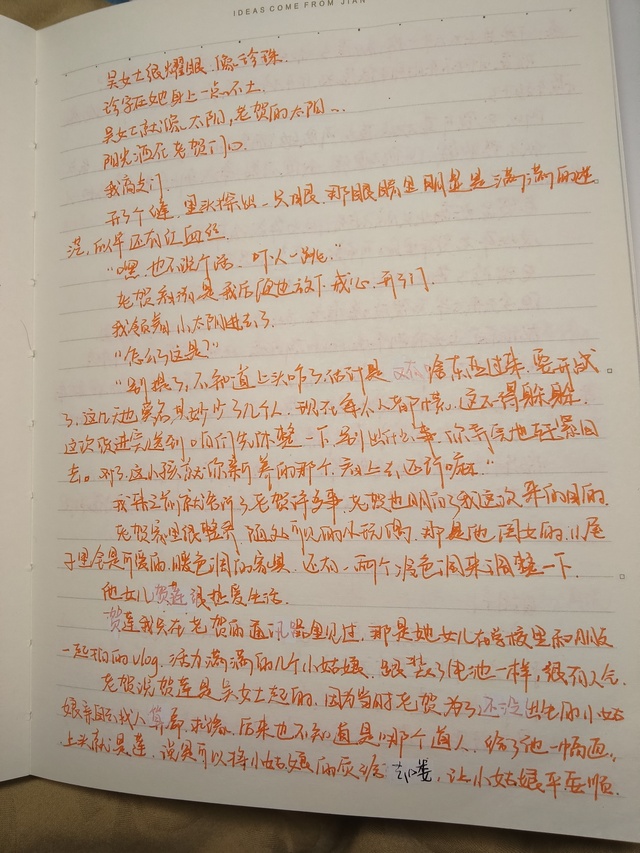 IDEAS COME FROM JIAN
吴女士很耀眼，像珍珠.
珍字在她身上一点不土
吴女士就像太阳，老贺的太阳…
阳光洒在老贺门口
我高去门.
开了个缝，里头探出一只眼，那眼睛里明显是满满的迷
茫，的伴还有红血丝
“嘿，也不说个话，吓人一跳.”
老贺看到是我后便也放下戒心，开了门.
我领着小太阳进去了
“怎么了这是?”
“别提了，不知道上头咋了，估计是又有啥东西过来，要开战
了，这几天也莫名其妙少了几个人，现在每个人都慌，这不得躲躲.
这次改进完送到咱们先休整一下，别出什么事，你寻
去。对了，这小孩就你新养的那个，
我再之前就告诉了老贺许多事，老贺也明白了我这次来的目的.
老贺家里很整齐，随处可见的小玩偶，那是他闺女的，小屋
子里全是可爱的，暖色调的家具，还有一两个冷色调来调整一下.
他女儿贺莲很热爱生活.
贺莲我只在老贺的通讯器里见过，那是她女儿在学校里和朋友
一起拍的vlog，活力满满的几个小姑娘，跟装了电池一样，很有人气.
老贺说贺莲是吴女士起的，因为当时老贺为了还没出生的小姑
娘亲自找人算命求缘，后来也不知道是那个道人，给了他一幅画，
上头就是莲，说是可以将小姑娘的灾 ，让小姑娘平平顺